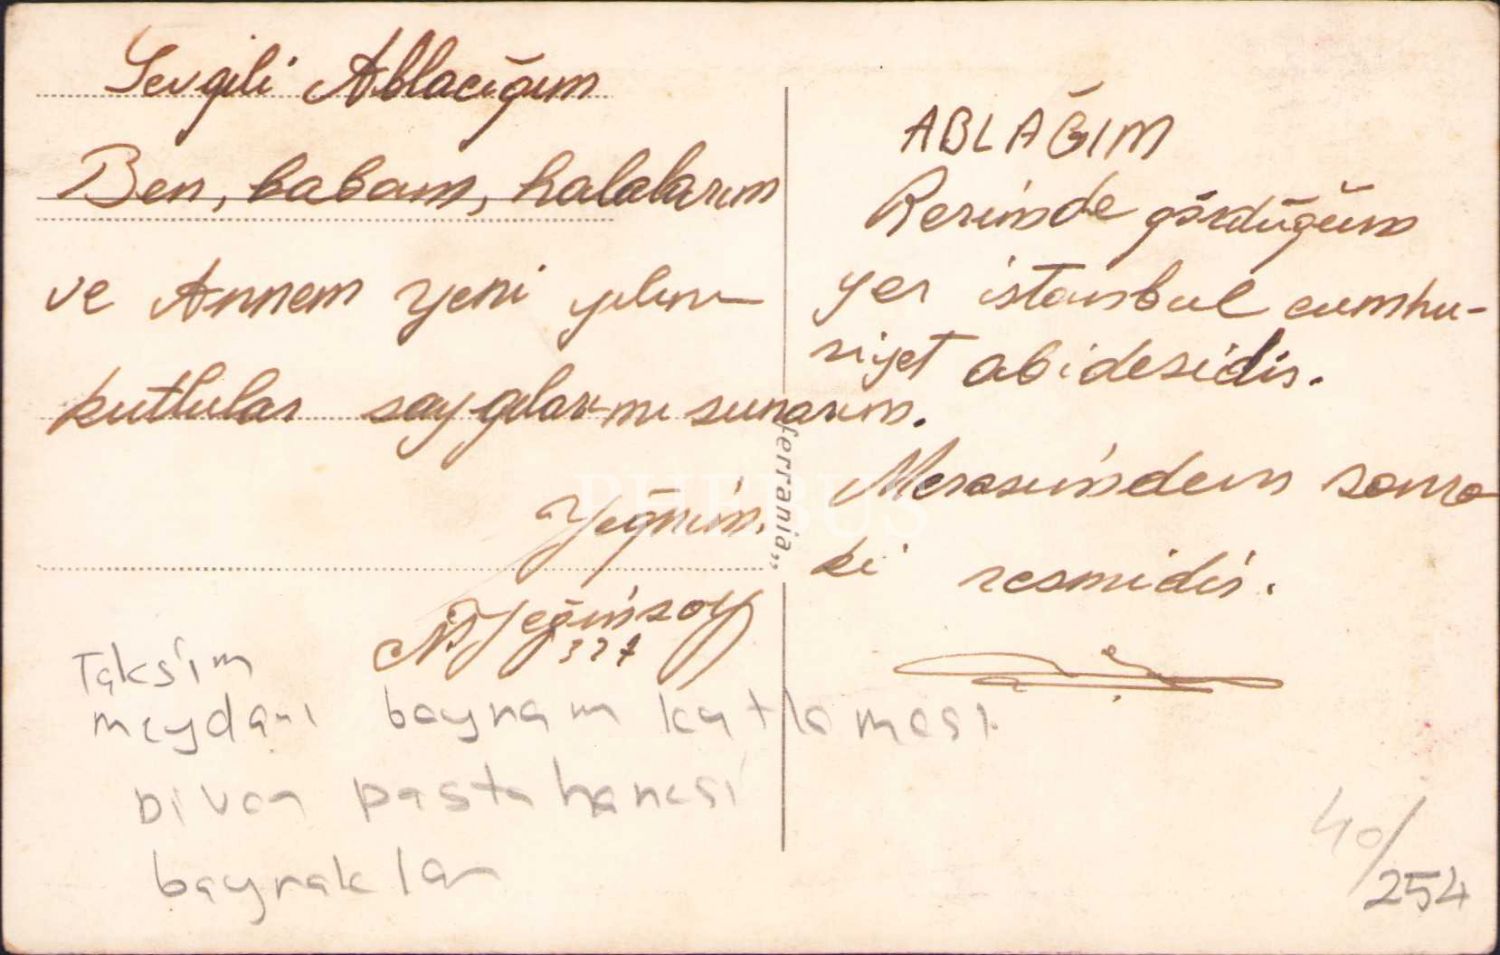 Sevgili Ablacığım
Ben, babam, halalarım
ve Annem yeni yılını
kutlular saygılarımı sunarım.
Yeğnin.
N. Yeğinsoy
327
ABLAĞIM
Resimde gördüğüm
yer istanbul cumhu-
riyet abidesidir.
Merasimden sonra
ki resmidir.
ferrania„
PHEBUS
Taksim
meydanı bayram kutlaması.
Divan pastahanesi
bayraklar
40/
254